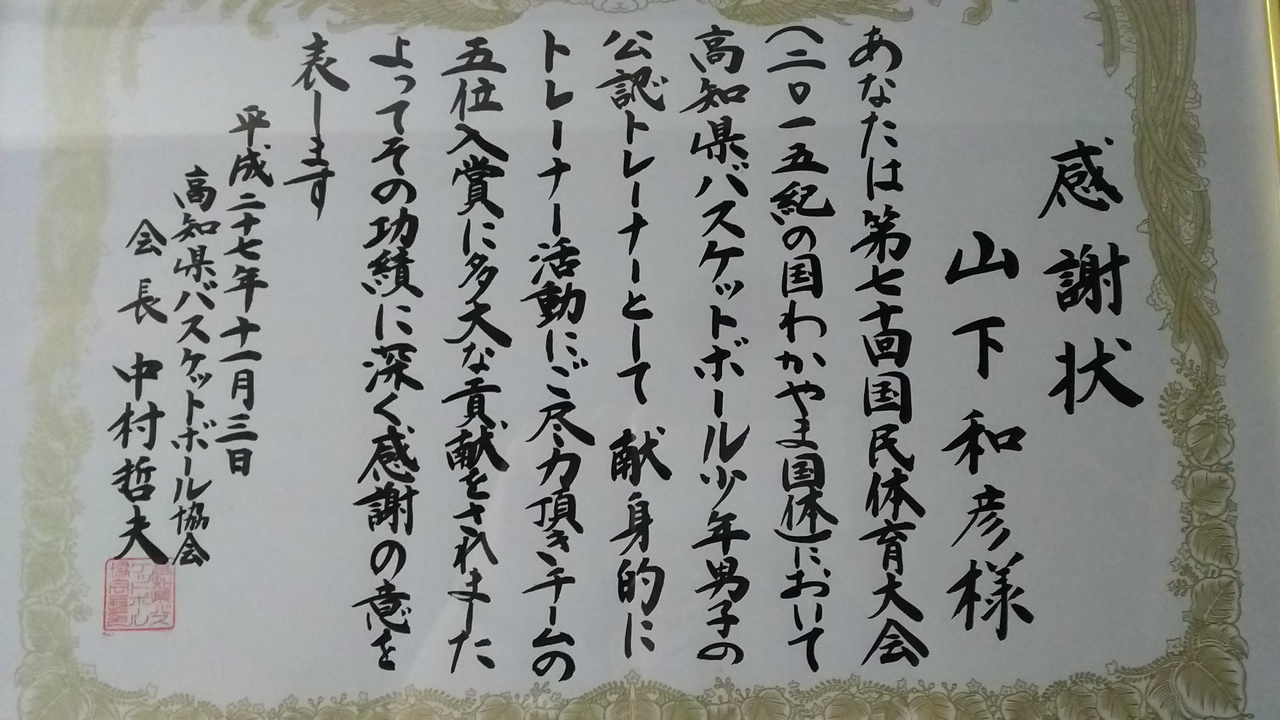 感謝状
山下和彦様
あなたは第七十回国民体育大会
(二〇一五紀の国わかやま国体)において
高知県バスケットボール少年男子の
公認トレーナーとして 献身的に
トレーナー活動にご尽力頂きチームの
五位入賞に多大な貢献をされました
よってその功績に深く感謝の意を
表します
平成二十七年十一月三日
高知県バスケットボール協会
会長 中村哲夫